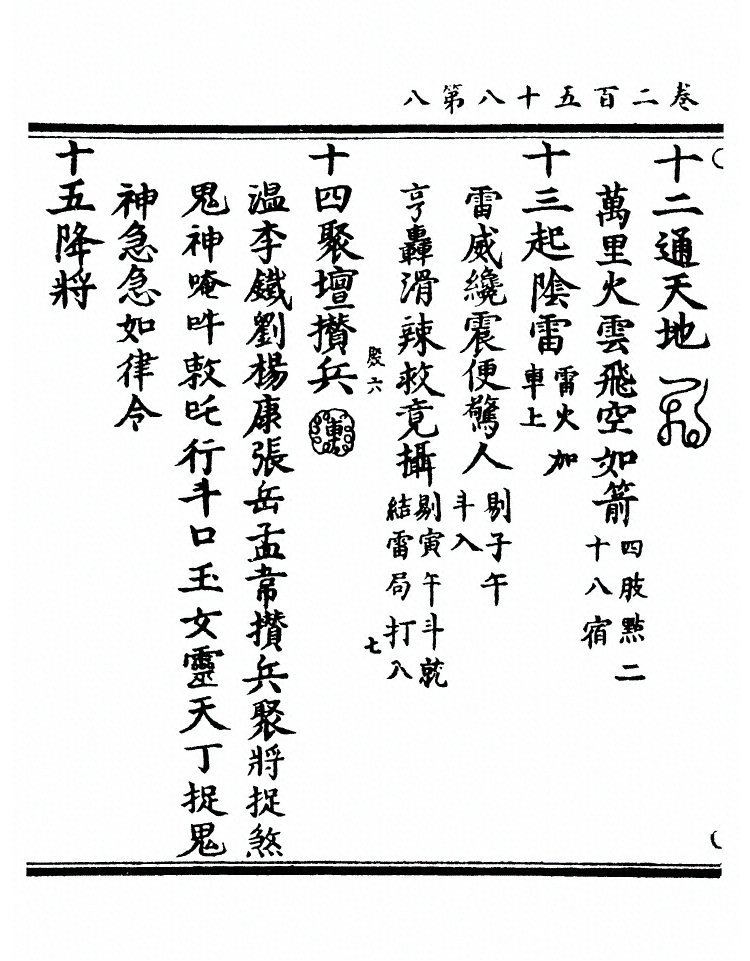 卷二百五十八第八
十二通天地
萬里火雲飛空如箭四肢點二十八宿
十三起陰雷雷火加車上
雷威纔震便驚人剔子午斗入
亨轟滑辣敕竟攝剔寅午斗就結雷局打入
殷六
七
十四聚壇攢兵
溫李鐵劉楊康張岳孟韋攢兵聚將捉煞
鬼神唵吽敕吒行斗口玉女靈天丁捉鬼
神急急如律令
十五降將